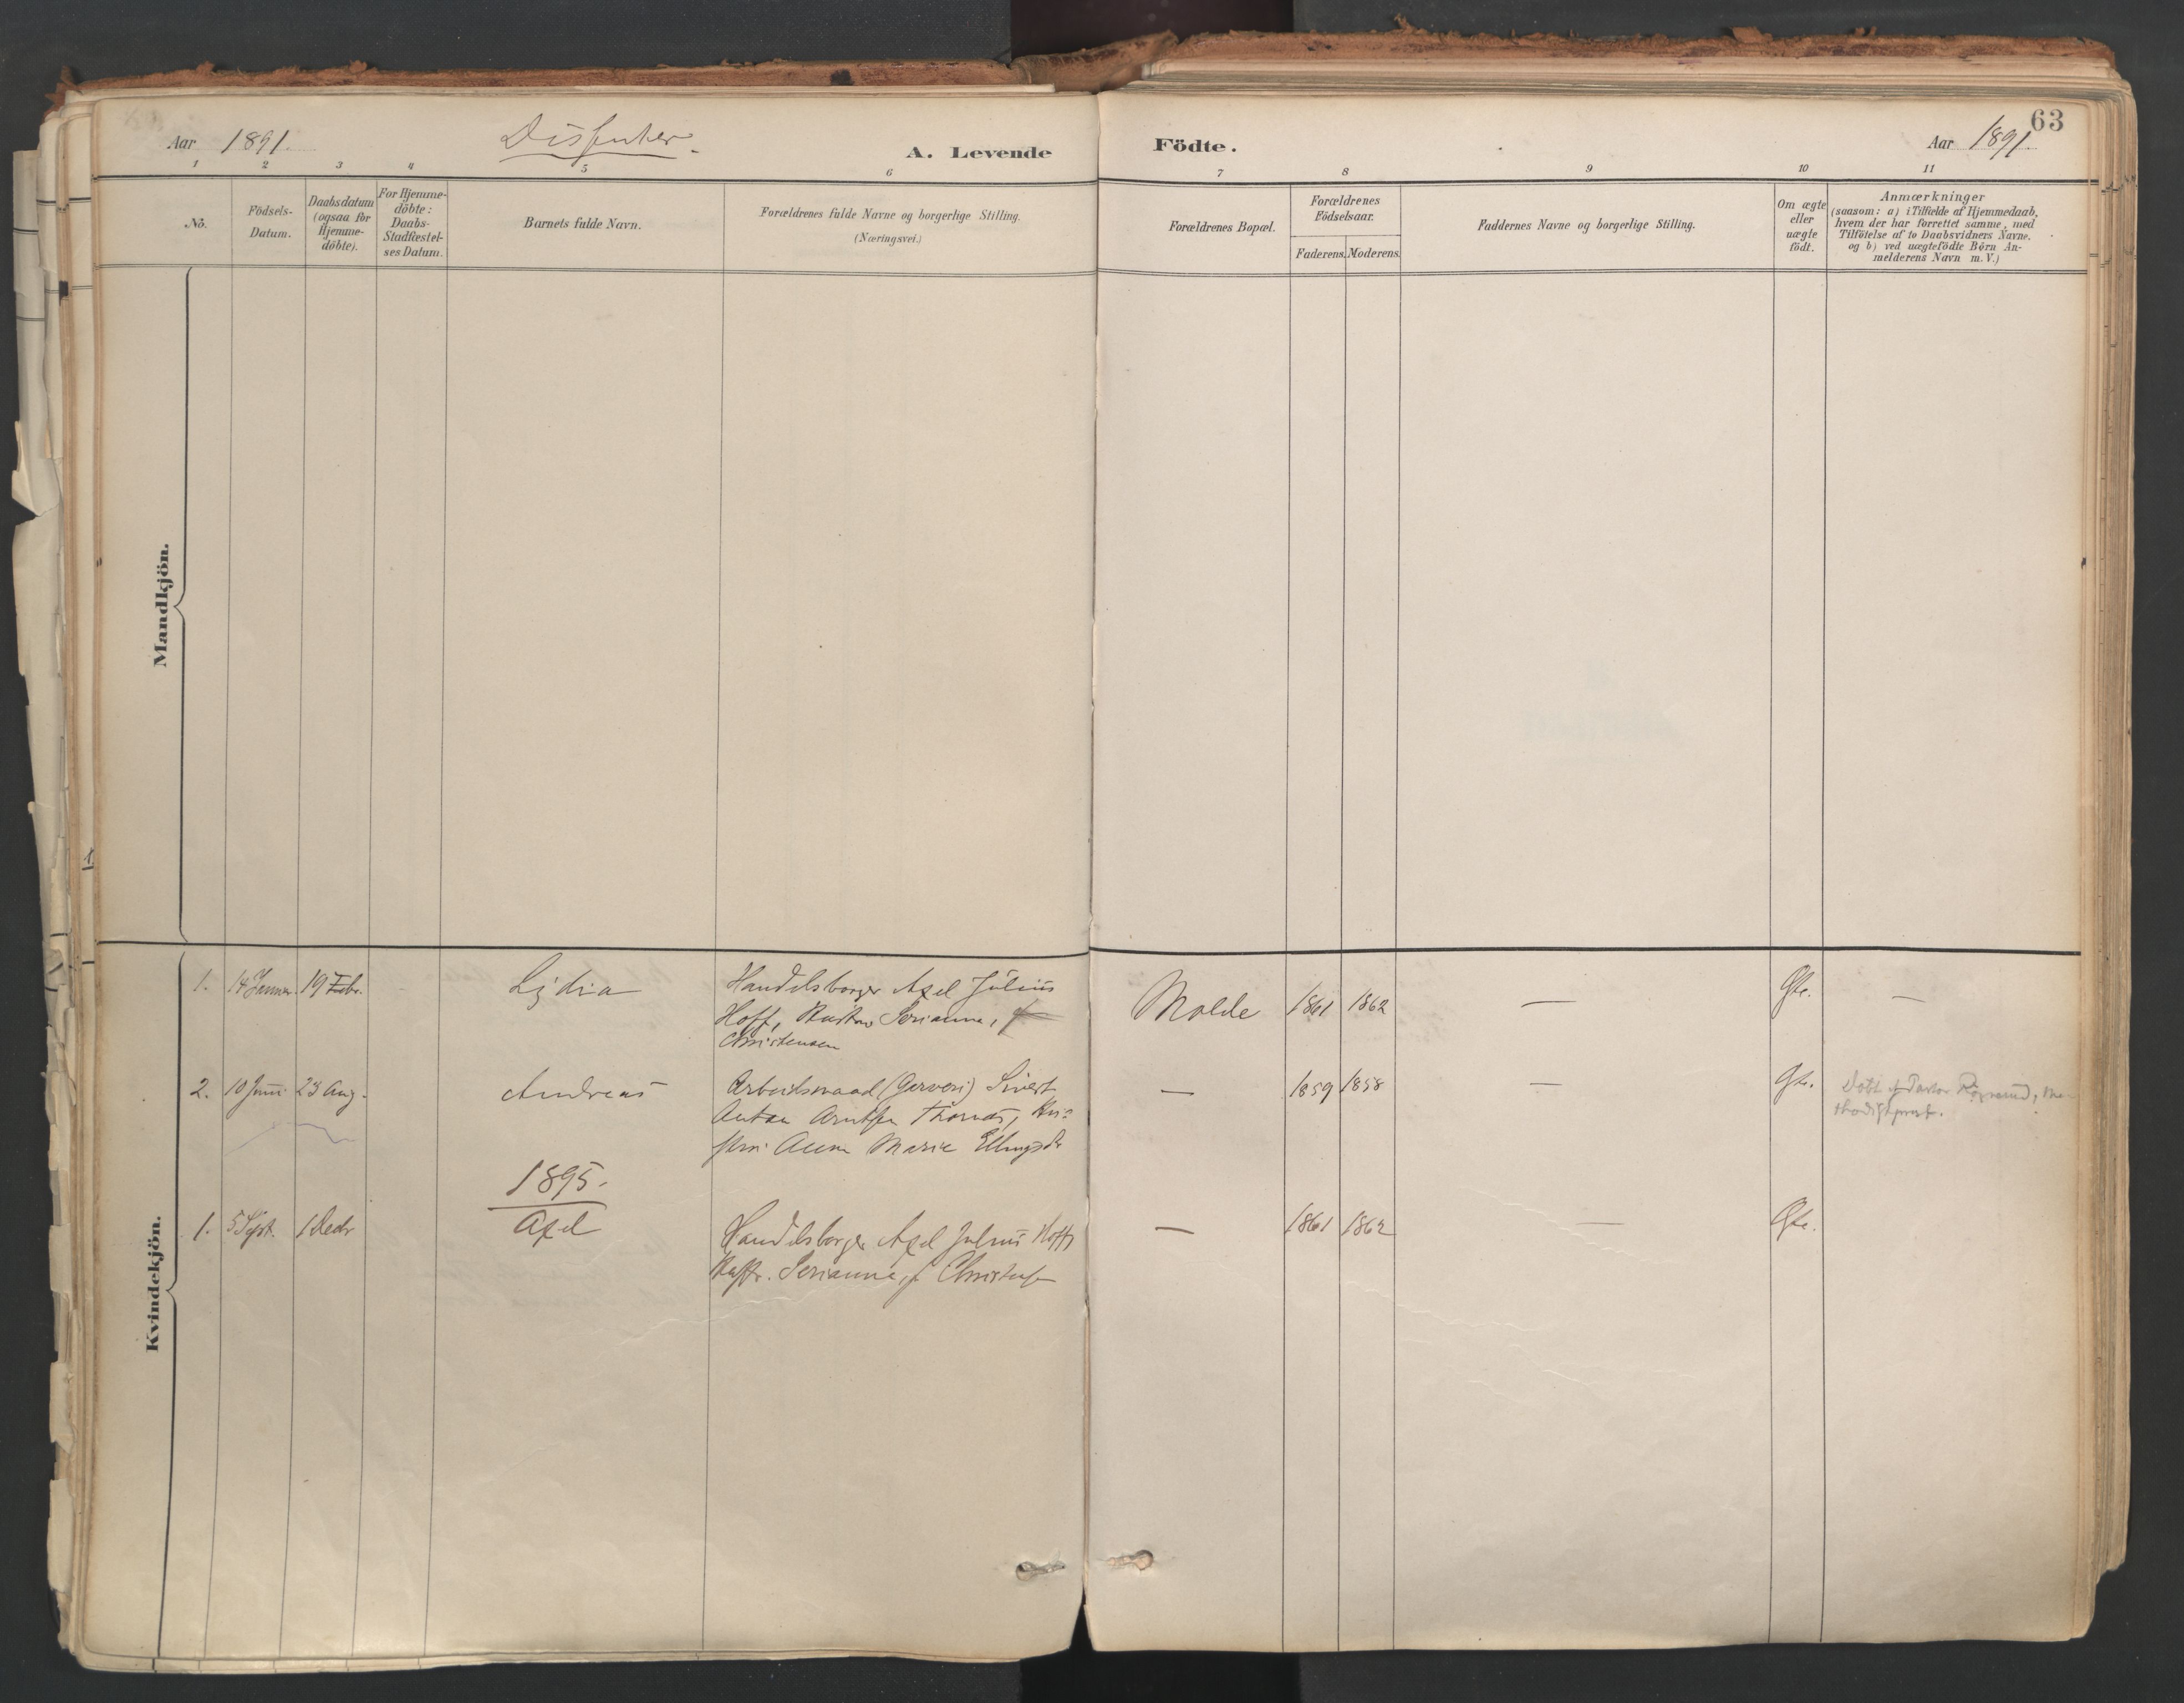 Aar 1891.
Dissenter.
A. Levende
Födte.
Aar 1891.
63
1 2 3 4 5 6 7 8 9 10 11
No.
Födsels-
Datum.
Daabsdatum
(ogsaa for
Hjemme-
döbte).
For Hjemme-
döbte:
Daabs-
Stadfæstel-
ses Datum.
Barnets fulde Navn.
Forældrenes fulde Navne og borgerlige Stilling.
(Næringsvei.)
Forældrenes Bopæl.
Forældrenes
Födselsaar.
Faderens. Moderens.
Faddernes Navne og borgerlige Stilling.
Om ægte
eller
uægte
födt.
Anmærkninger
(saasom: a) i Tilfælde af Hjemmedaab,
hvem der har forrettet samme, med
Tilföielse af to Daabsvidners Navne.
og b) ved uægtefödte Börn An-
melderens Navn m. V.)
Mandkjön.
Kvindekjön.
1. 14 Januar. 19 Febr. Lydia
Handelsborger Axel Julius
Hoff, Hustru Serianna,
Christensen
Molde 1861 1862 — Gte. —
2. 10 Juni 23 Aug. Andreas
Arbeidsmand (Garveri) Sivert
Anton Arntsen Hustru
Anna Marie Ellingsdr
— 1859 1858 — Gte.
Döbt af Pastor me-
thodistprest.
1895.
1. 5 Sept. 1 Decbr Axel
Handelsborger Axel Julius Hoff,
Hustr. Serianna, f. Christensen
— 1861 1862 — Gte.